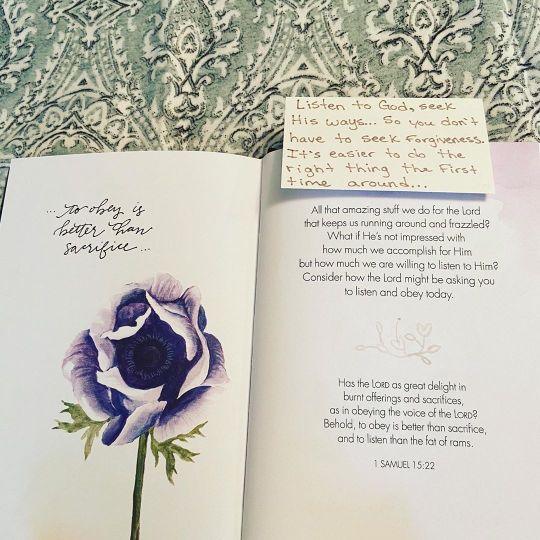 ... to obey is
better than
sacrifice ...
Listen to God, seek
His ways... So you don't
have to seek Forgiveness.
It's easier to do the
right thing the First
time around...
All that amazing stuff we do for the Lord
that keeps us running around and frazzled?
What if He's not impressed with
how much we accomplish for Him
but how much we are willing to listen to Him?
Consider how the Lord might be asking you
to listen and obey today.
Has the LORD as great delight in
burnt offerings and sacrifices,
as in obeying the voice of the LORD?
Behold, to obey is better than sacrifice,
and to listen than the fat of rams.
1 SAMUEL 15:22